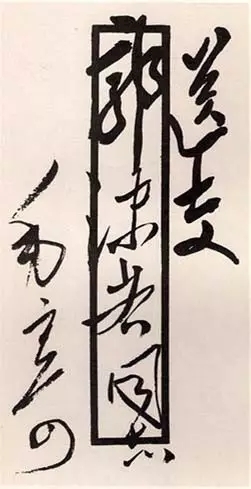 送交
郭沫若同志
毛